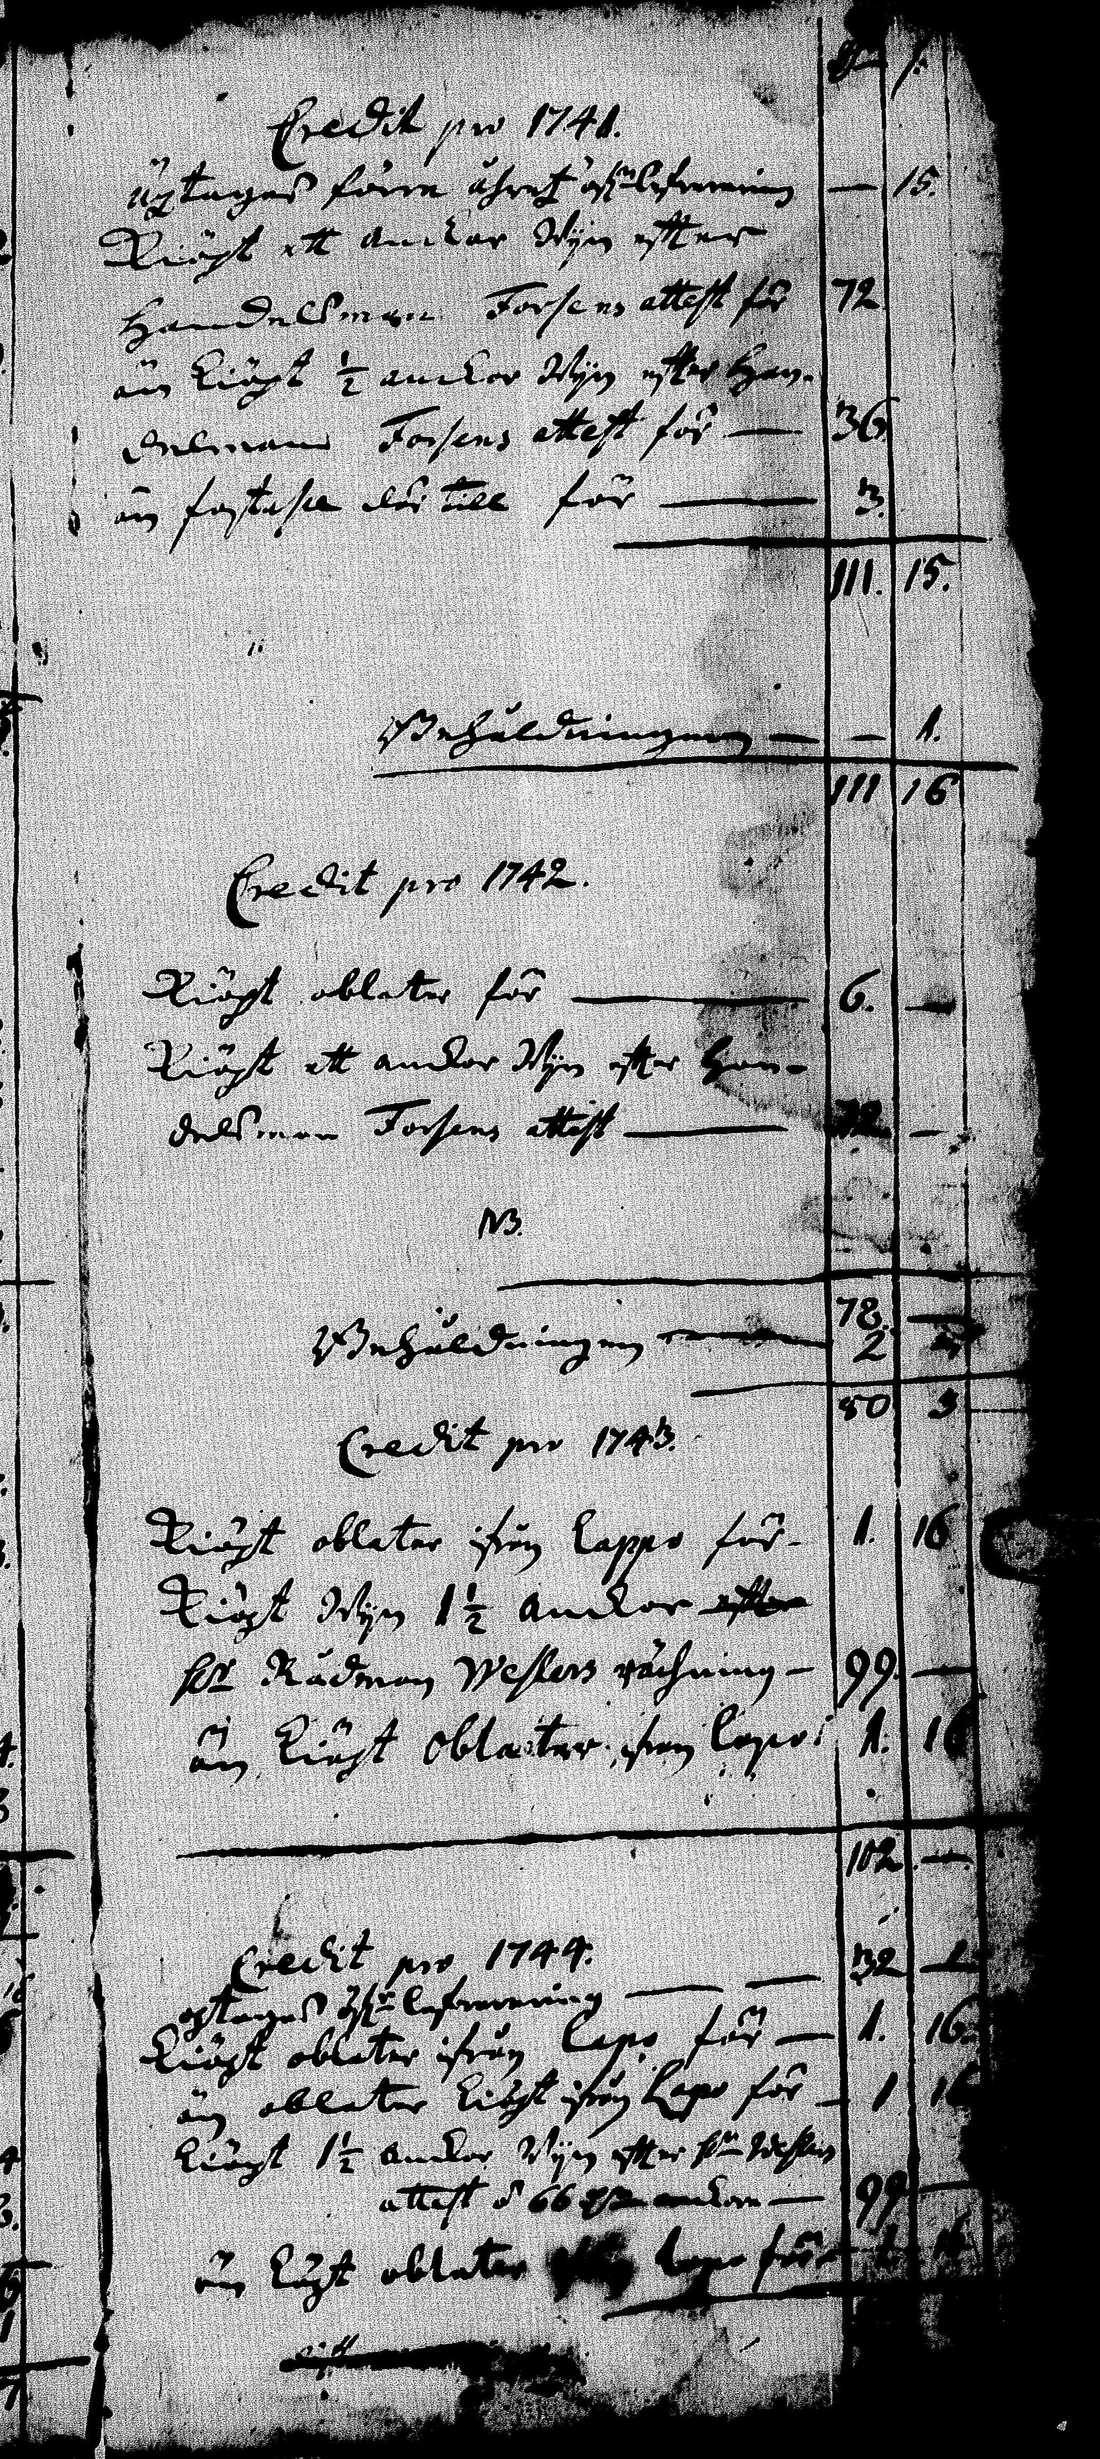 Credit pro 1741.
uptages förra åhretz lefrerning — 15.
Kiöpt ett anckar Wijn effter
Handelsman Forsens attest för 72
än kiöpt ½ anckor Wijn effter Han-
delsmans Forsens attest för — 36
än fastaſie där till för — 3.
111. 15.
Behåldningen — — 1.
111 16
Credit pro 1742.
Kiöpt oblater för — 6. —
Kiöpt ett anckor Wijn effter Han-
delsman Forsens attest — 72. —
NB.
78. —
Behåldningen — 2
80 3
Credit pro 1743.
Kiöpt oblater ifrån Lappo för - 1. 16
Kiöpt Wijn 1½ anckor effter
Hr Rådman Weſlers rächning — 99. —
än kiöpt oblater ifrån Lapo 1. 16
102. —
Credit pro 1744.
optages lefrerning — — 32
Kiöpt oblater ifrån Lapo för — 1. 16.
än oblater kiöpt ifrån Lapo för — 1 16
kiöpt 1½ anckor Wijn effter Hr Weſlers
attest å 66 anckore — 99 —
än kiöpt oblater Lapo för